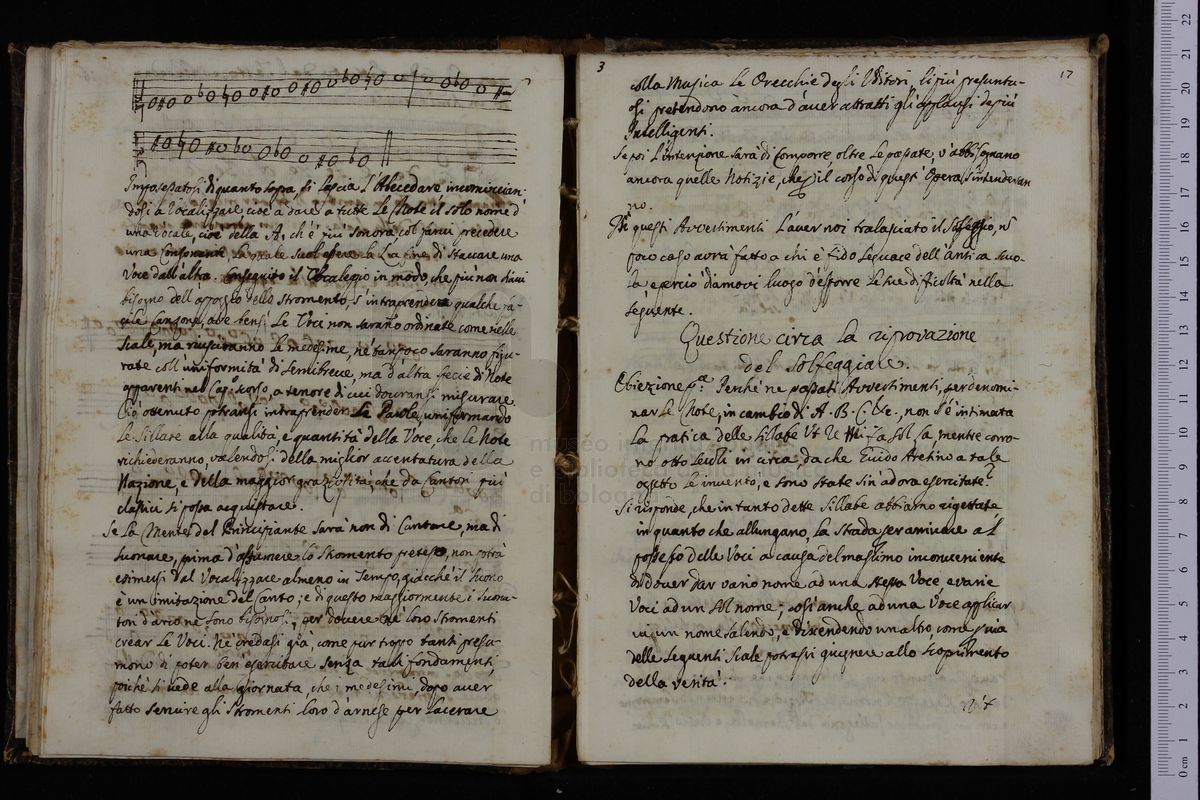 Impossessatosi di quanto sopra, si lascia l'Abecedare incomincian-
dosi a Vocalizzare cioè a dare a tutte Le Note il solo nome d'
una Vocale, cioè della A, ch'è più sonora col farvi precedere
una Consonante La quale suol essere La L a fine di staccare una
Voce dall'altra. Conseguito il Vocaleggio in modo, che più non s'havi
bisogno dell'appoggio dello Stromento, s'intraprenderà qualche fa-
cile Canzone, ove bensì Le Voci non saranno ordinate come nelle
Scale, ma riusciranno Le medesime, nè tanpoco saranno figu-
rate coll'uniformità di Semibreve, ma d'altra specie di Note
apparenti nel Capo scorso, a tenore di cui douransi misurare.
Ciò ottenuto potransi intraprender Le Parole, uniformando
Le Sillabe alla qualità, e quantità della Voce, che Le Note
richiederanno, valendosi della miglior accentatura della
Nazione, e della maggior graziosità, che da Cantori più
classici si possa acquistare.
Se La Mente del Principiante sarà non di Cantare, ma di
Suonare, prima d'assumere lo Stromento preteso, non potrà
esimersi dal Vocalizzare almeno in Tempo, giacchè il Suono
è un imitazione del Canto; e di questo maggiormente i Suona-
tori d'arco ne sono bisognosi, per dovere ne' loro Stromenti
crear Le Voci. Nè credasi già, come pur troppo tanti presu-
mono di poter ben esercitare senza tali fondamenti,
poichè si vede alla giornata, che i medesimi, dopo aver
fatto servire gli Stromenti loro d'arnese per Lacerare
3
17
colla Musica Le Orecchie degli Uditori, li più presuntu-
osi pretendono ancora d'aver attratti gli applausi de più
Intelligenti.
Se poi L'intenzione sarà di Comporre oltre Le passate, v'abbisognano
ancora quelle Notizie, che per il corso di questi Opera s'intenderan
no.
In questi Avvertimenti L'aver noi tralasciato il Solfeggio, non
poco caso avrà fatto a chi è fido Seguace dell'antica scuo-
la e perciò diamovi luogo d'esporre Le sue difficoltà nella
seguente.
Questione circa La riprovazione
del Solfeggiare.
Obiezione pma. Perchè ne passati Avvertimenti, per denomi-
nar Le Note, in cambio di A. B. C. &c., non s'è intimata
La pratica delle Sillabe Ut Re Mi Fa Sol La, mentre corro-
no otto Secoli in circa, da che Guido Aretino a tale
oggetto Le inventò, e sono state sin ad ora esercitate?
Si risponde, che in tanto dette Sillabe abbiamo rigettate
in quanto che allungano, La Strada per arrivare al
possesso delle Voci a causa del massimo inconveniente
di dover dar vario nome ad una stessa Voce, e varie
Voci ad un sol nome; così anche ad una Voce applicar
vi un nome salendo, e discendendo un altro, come su
delle seguenti Scale potrassi giugnere allo scoprimento
della verità.